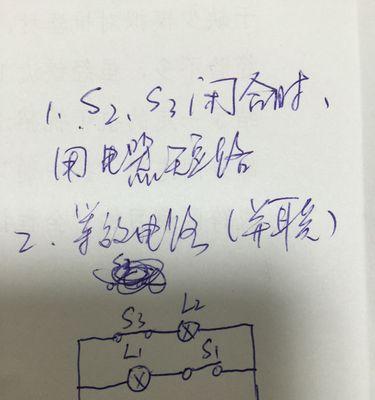 1、S2、S3闭合时、
用电器短路
2、等效电路(并联)
S3 L2
L1 S1